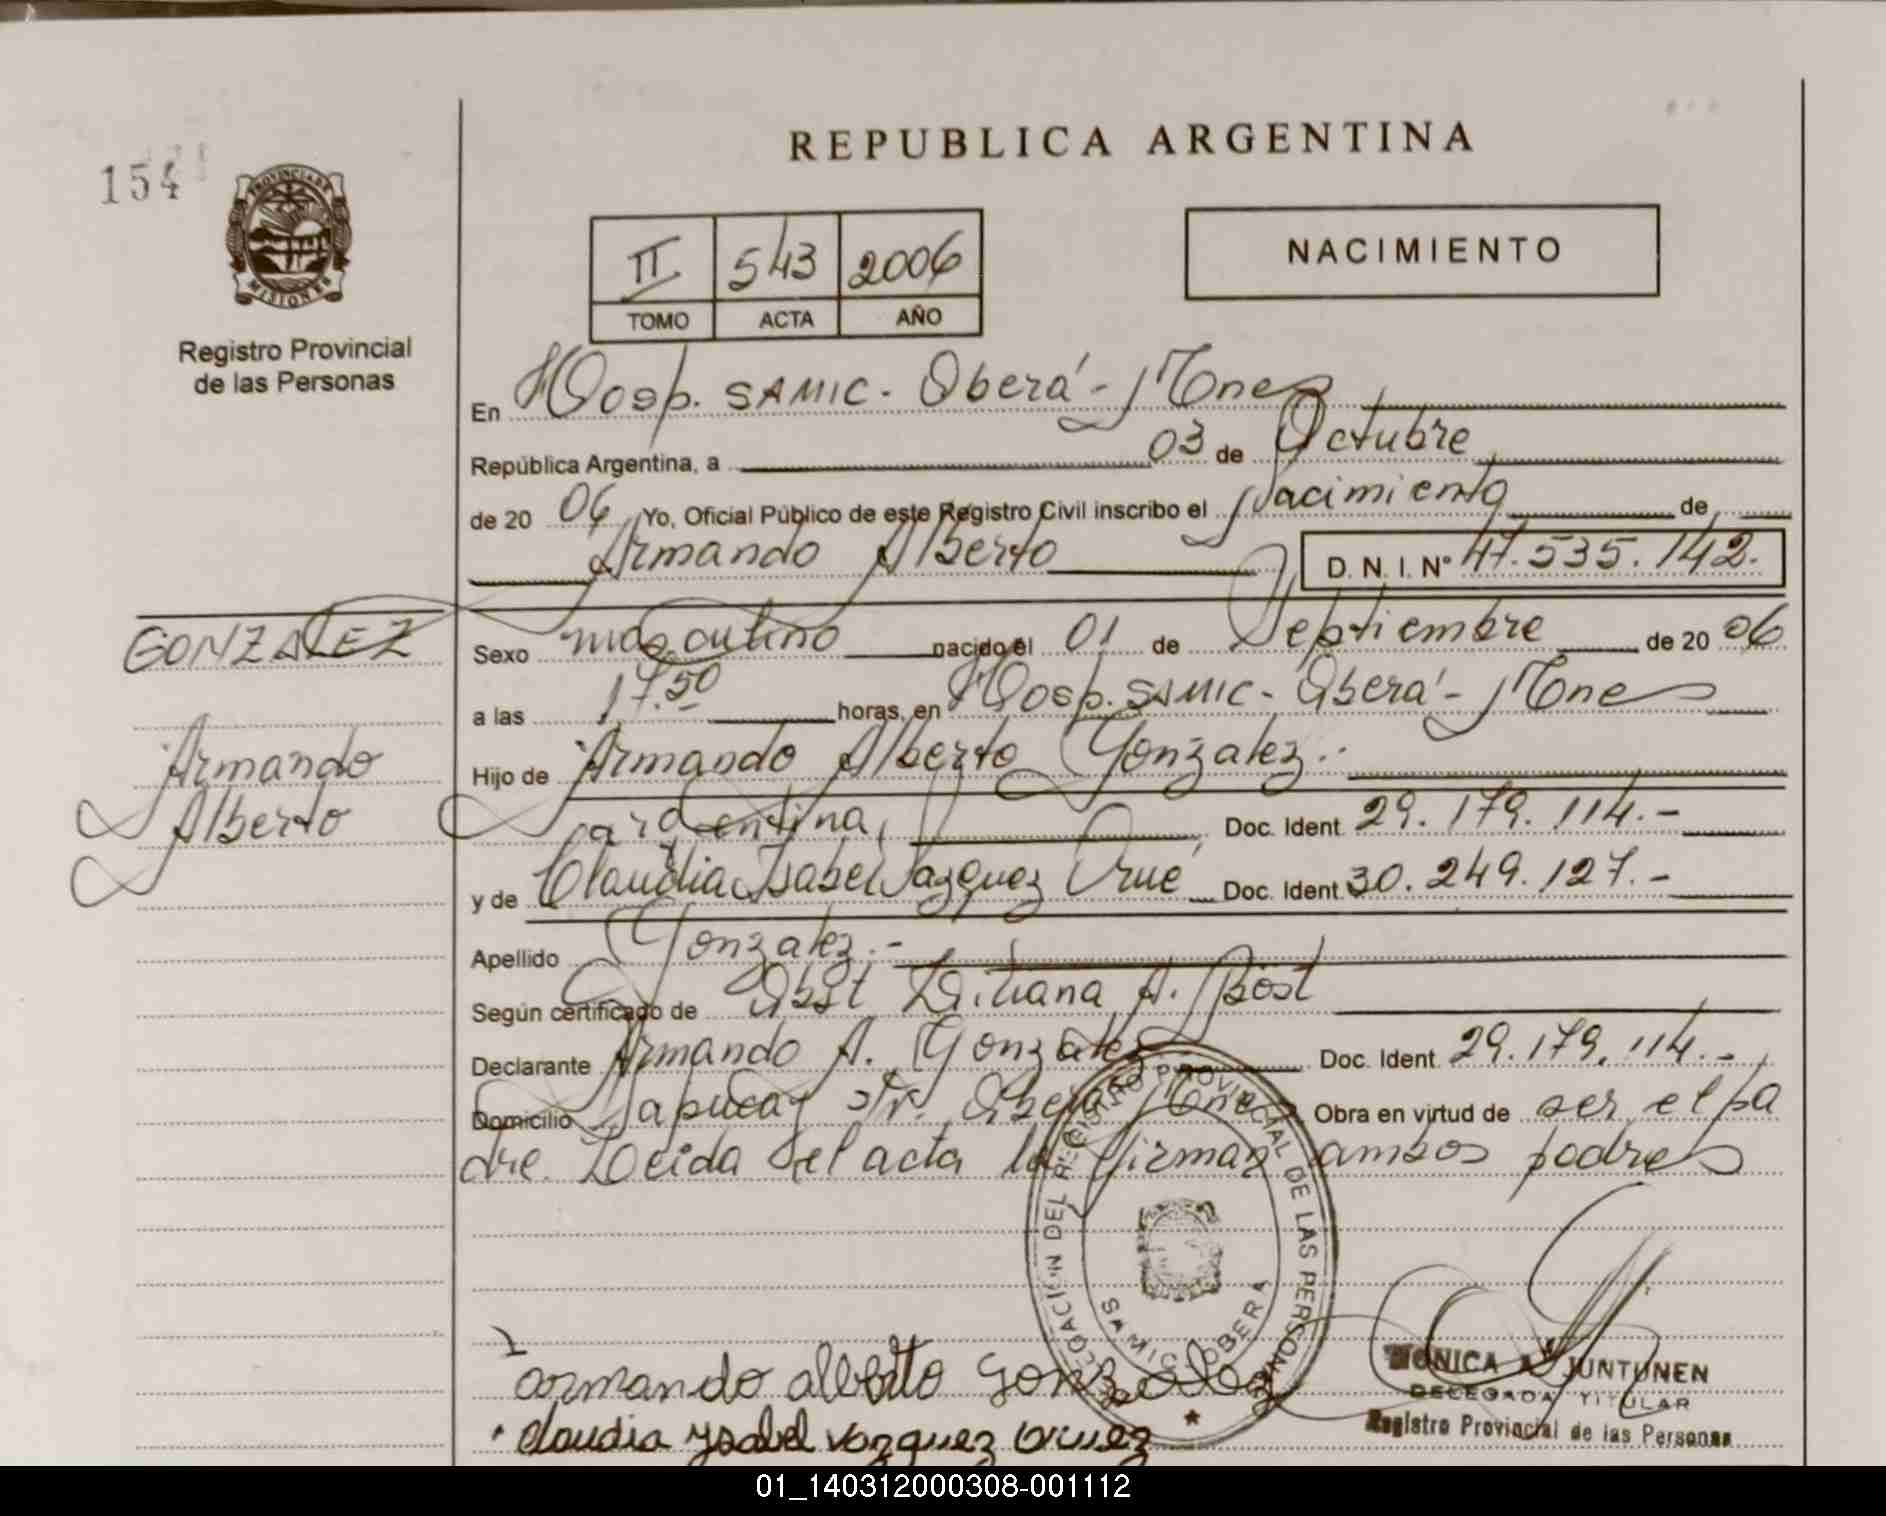 154
REPUBLICA ARGENTINA
PROVINCIA DE
MISIONES
Registro Provincial
de las Personas
II 543 2006
TOMO ACTA AÑO
NACIMIENTO
En Hosp. SAMIC - Oberá - Mones
República Argentina, a 03 de Octubre
de 20 06 Yo, Oficial Público de este Registro Civil inscribo el Nacimiento de
Armando Alberto D. N. I. Nº 47.535.142.
GONZALEZ
Armando
Alberto
Sexo masculino nacido el 01 de Septiembre de 20 06
a las 17.50 horas, en Hosp. SAMIC - Oberá - Mones
Hijo de Armando Alberto Gonzalez.-
argentina, Doc. Ident. 29.179.114.-
y de Claudia Isabel Vazquez Orué Doc. Ident. 30.249.127.-
Apellido Gonzalez.-
Según certificado de Obst Liliana A. Bost
Declarante Armando A. Gonzalez Doc. Ident. 29.179.114.-
Domicilio Yapucay Oberá Mones Obra en virtud de ser el pa
dre. Leida el acta la firman ambos padres
DELEGACION DEL REGISTRO PROVINCIAL DE LAS PERSONAS
SAMIC OBERA
armando alberto gonzalez
claudia ysabel vazquez oruez
MONICA A. JUNTUNEN
DELEGADA TITULAR
Registro Provincial de las Personas
01_140312000308-001112